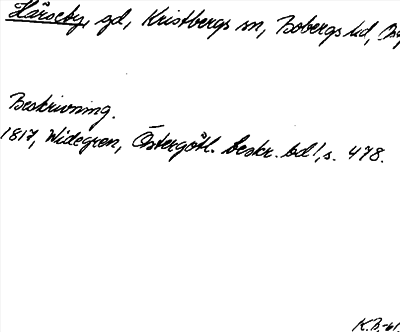 Hårseby, gd, Kristbergs sn, Bobergs hd, Ög
Beskrivning.
1817, Widegren, Östergötl. beskr. bd 1, s. 478.
K.B.-61.